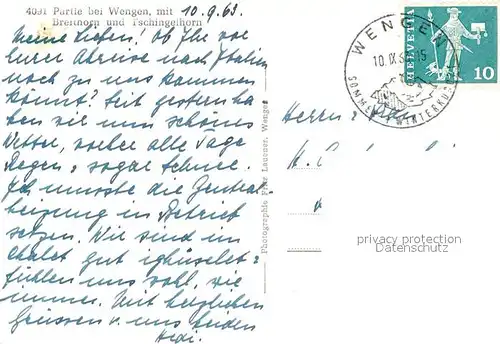 4091 Partie bei Wengen, mit
Breithorn und Tschingelhorn
10.9.63.
Meine Lieben! Ob Ihr vor
Eurer Abreise nach Italien
noch zu uns kommen
könnt? Seit gestern ha-
ben wir nun schönes
Wetter, vorher alle Tage
Regen u. sogar Schnee.
Ich musste die Zentral-
heizung in Betrieb
setzen. Wir sind im
Chalet gut ighüselet
fühlen uns wohl, wie
immer. Mit herzlichen
Grüssen v. uns beiden
Hedi.
Photographie Fritz Lauener, Wengen
WENGEN
10.IX.6
15
SOMMER
WINTERKUR
HELVETIA
10
Herrn
privacy protection
Datenschutz